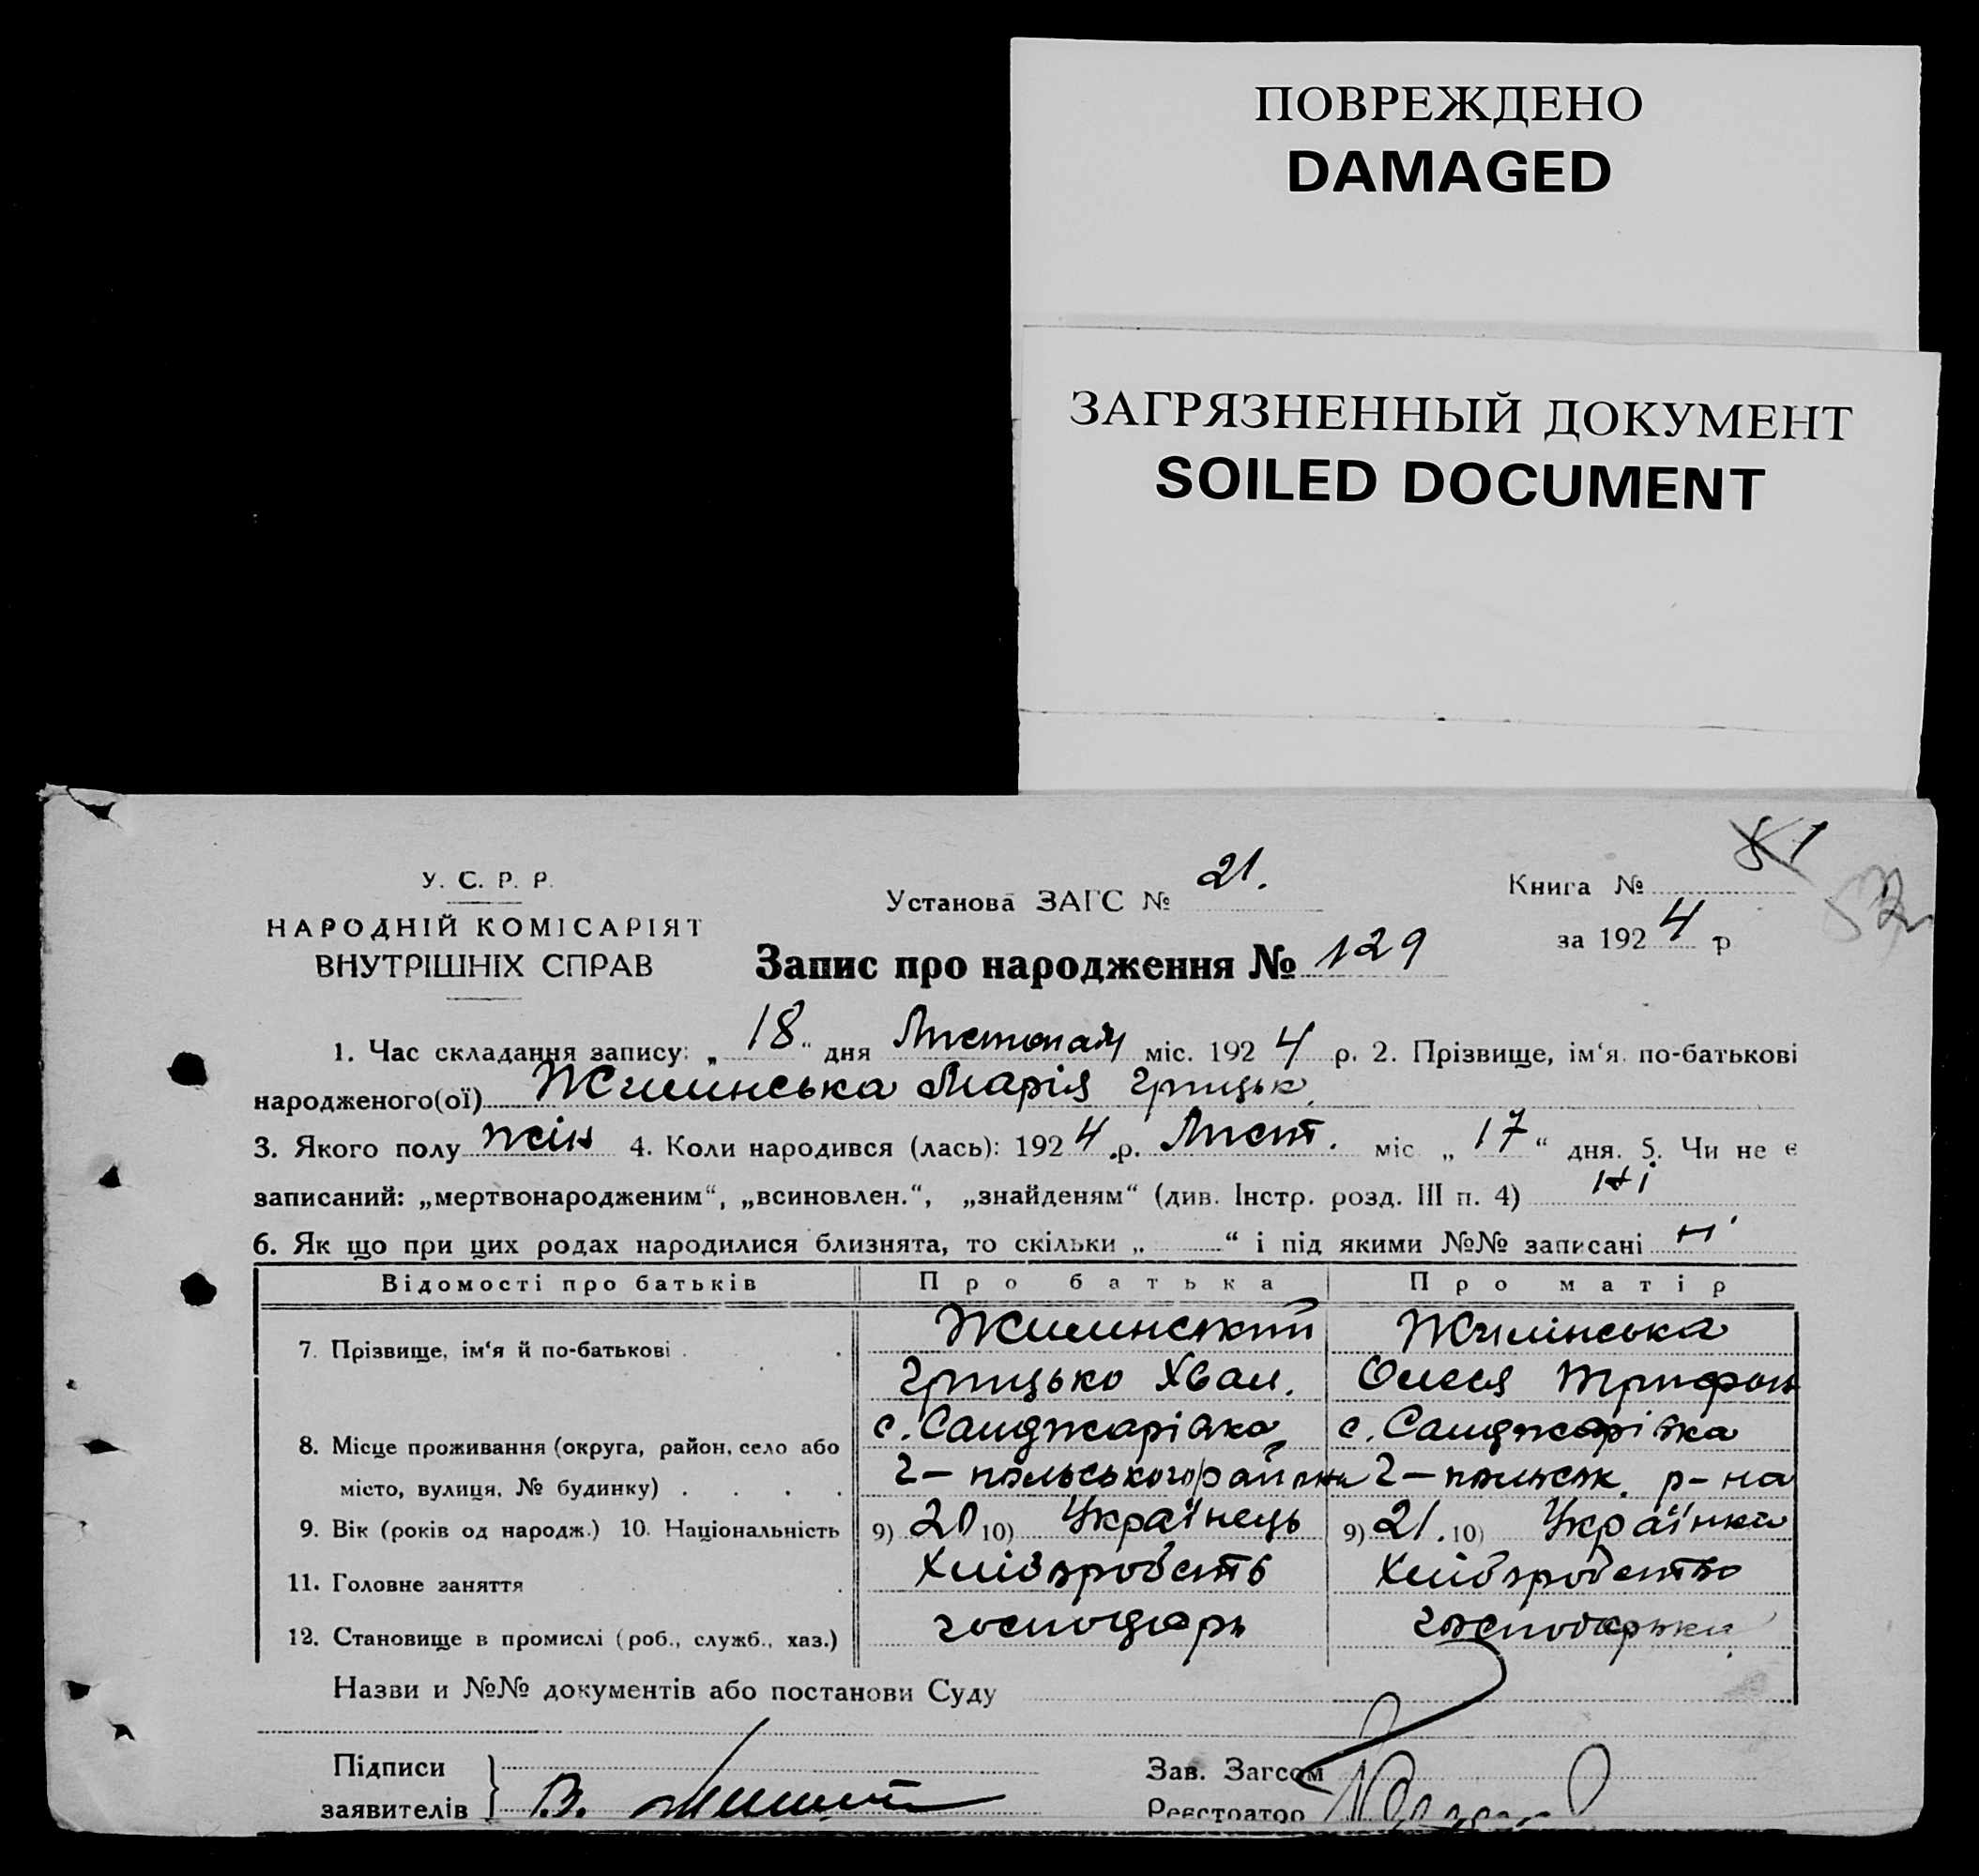 ПОВРЕЖДЕНО
DAMAGED
ЗАГРЯЗНЕННЫЙ ДОКУМЕНТ
SOILED DOCUMENT
У. С. Р. Р.
НАРОДНІЙ КОМІСАРІЯТ
ВНУТРІШНІХ СПРАВ
Установа ЗАГС № 21.
Книга №
за 1924 р
Запис про народження № 129
1. Час складання запису: „18“ дня Листопад міс. 1924 р. 2. Прізвище, ім‘я. по-батькові
народженого(ої) Жилинська Марія Грицьк.
3. Якого полу жін 4. Коли народився (лась): 1924 .р. Лист. міс „17“ дня. 5. Чи не є
записаний: „мертвонародженим“, „всиновлен.“, „знайденям“ (див. Інстр. розд. III п. 4) Ні
6. Як що при цих родах народилися близнята, то скільки „ “ і під якими №№ записані ні
Відомості про батьків Про батька Про матір
7. Прізвище, ім‘я й по-батькові . Жилинський Жилінська
Грицько Хван. Олеся Трифон
8. Місце проживання (округа, район, село або с. Санджарівка с. Санджарівка
місто, вулиця, № будинку) . . . . Г-пільського району Г-пільськ. р-на
9. Вік (років од народж.) 10. Національність 9) 20 10) Українець 9) 21. 10) Українка
11. Головне заняття Хліборобств Хліборобство
12. Становище в промислі (роб., служб., хаз.) господарь господарька
Назви и №№ документів або постанови Суду
Підписи
заявителів В.
Зав. Загсом
Реєстратор